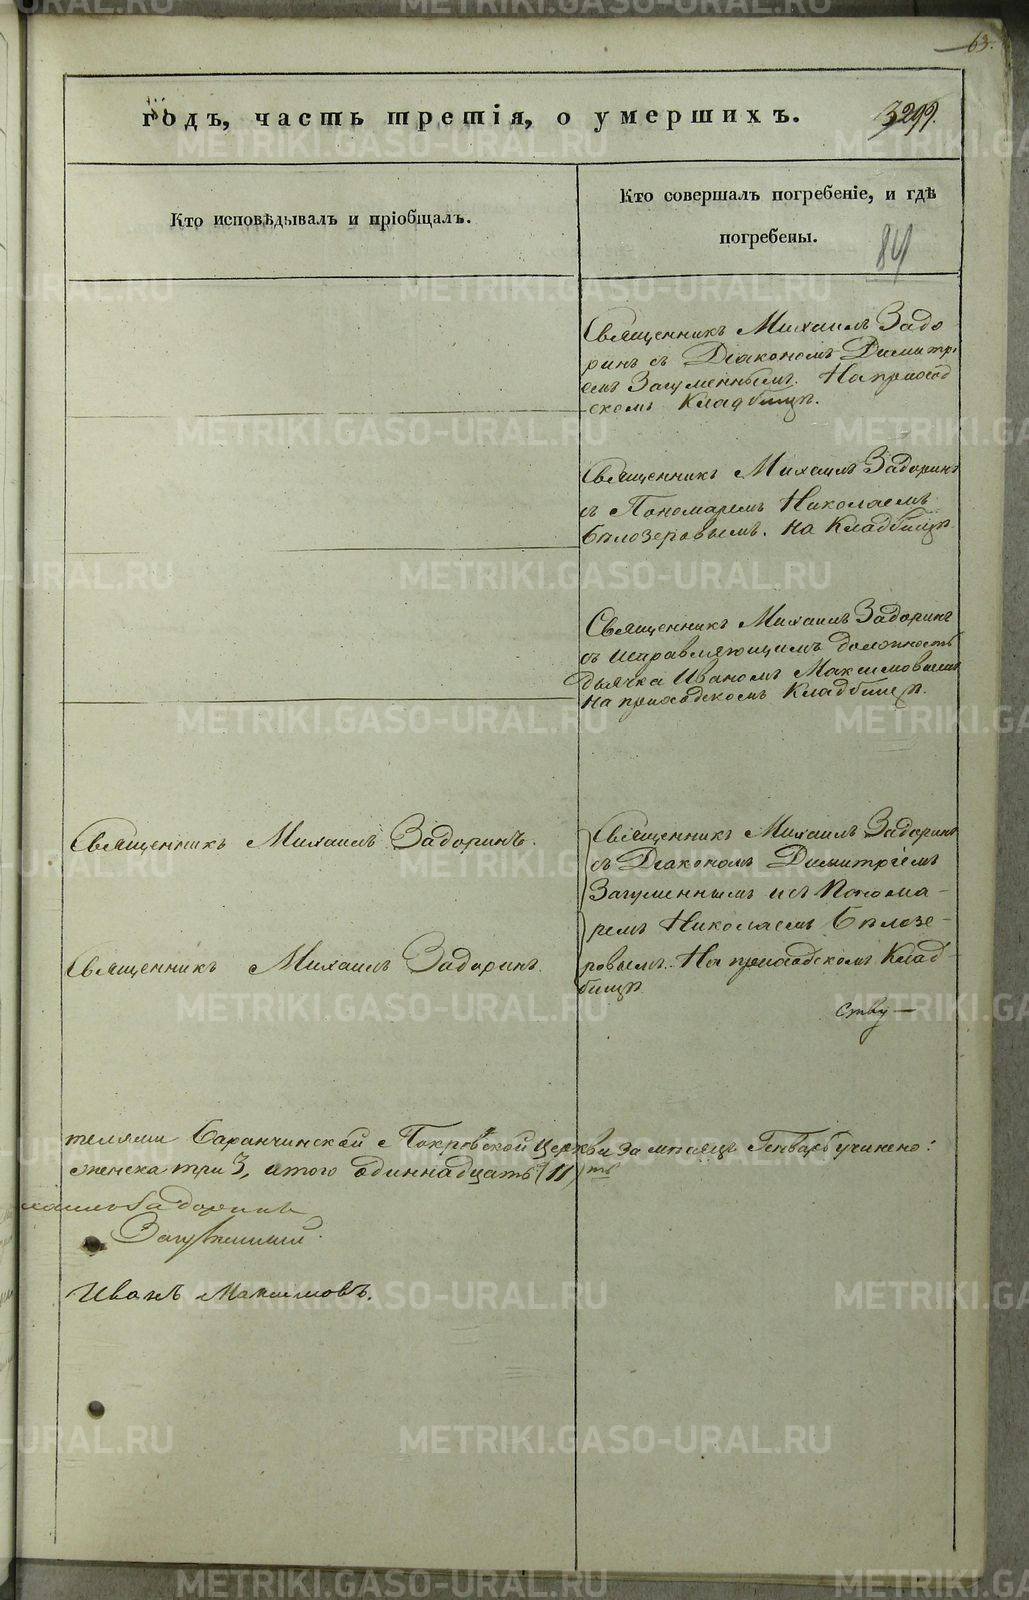 63.
годъ, часть третія, о умершихъ.
3299.
Кто исповѣдывалъ и пріобщалъ.
Кто совершалъ погребеніе, и гдѣ
погребены.
84
Священникъ Михаилъ Задо
ринъ съ Діакономъ Димитрі
емъ Загуменнымъ. На приход
скомъ Кладбищѣ.
Священникъ Михаилъ Задоринъ
съ Пономаремъ Николаемъ
Бѣлозеровымъ. На Кладбищѣ
Священникъ Михаилъ Задоринъ
съ исправляющимъ должность
дьячка Иваномъ Максимовымъ
На приходскомъ Кладбищѣ.
Священникъ Михаилъ Задоринъ.
Священникъ Михаилъ Задоринъ.
Священникъ Михаилъ Задоринъ
съ Діакономъ Димитріемъ
Загуменнымъ и съ Понома-
ремъ Николаемъ Бѣлозе-
ровымъ. На приходскомъ Клад-
бищѣ
ству —
телями Баранчинской Покровской Церкви за мѣсяцъ Генварь учинено:
женска три 3, а того одиннадцать (11)ть
хаилъ Задоринъ
Загуменный.
Иванъ Максимовъ.
METRIKI.GASO-URAL.RU